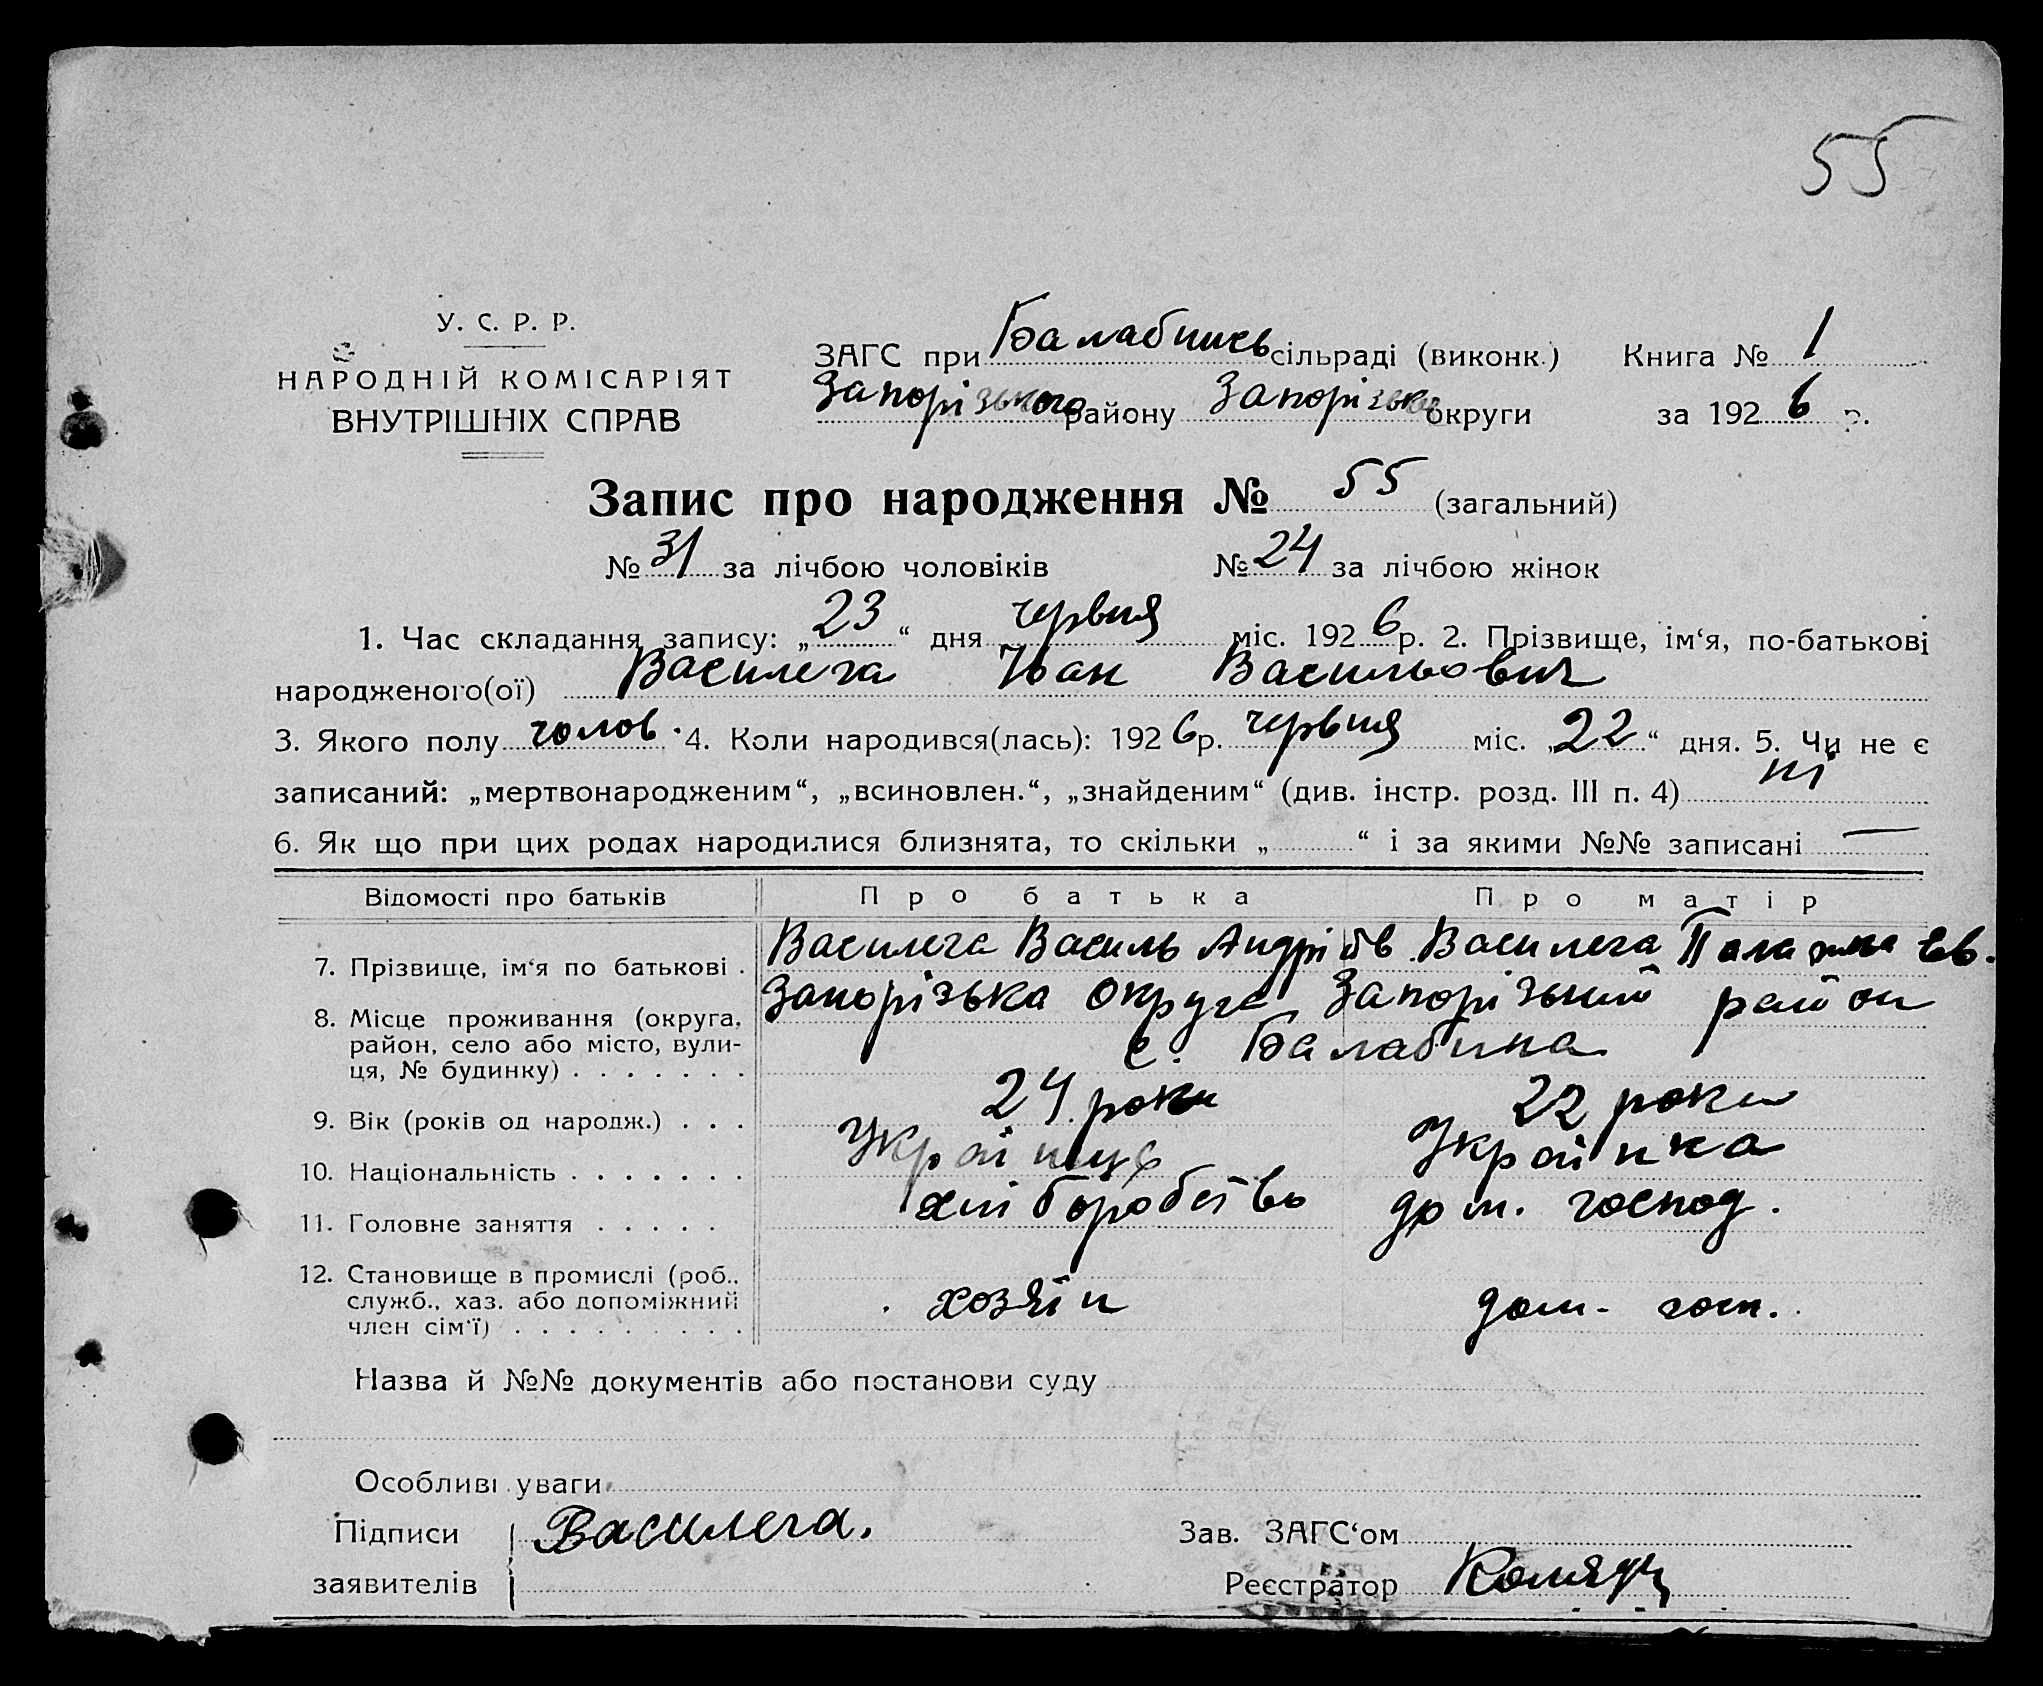 55
У. С. Р. Р.
НАРОДНІЙ КОМІСАРІЯТ
ВНУТРІШНІХ СПРАВ
ЗАГС при Балабинсь сільраді (виконк.) Книга № 1
Запорізького району Запорізьк округи за 1926 р.
Запис про народження № 55 (загальний)
№ 31 за лічбою чоловіків № 24 за лічбою жінок
1. Час складання запису: „23“ дня червня міс. 1926 р. 2. Прізвище, ім‘я, по-батькові
народженого(ої) Василега Іван Васильович
3. Якого полу чолов. 4. Коли народився(лась): 1926 р. червня міс. „22“ дня. 5. Чи не є
записаний: „мертвонародженим“, „всиновлен.“, „знайденим“ (див. інстр. розд. III п. 4) ні
6. Як що при цих родах народилися близнята, то скільки „ “ і за якими №№ записані —
Відомості про батьків Про батька Про матір
7. Прізвище, ім‘я по батькові . Василега Василь Андріїв Василега Ев.
8. Місце проживання (округа, район, село або місто, вулиця, № будинку) Запорізька округа Запорізький район
с. Балабина
9. Вік (років од народж.) 24 роки 22 роки
10. Національність Українць Українка
11. Головне заняття хліборобство дом. господ.
12. Становище в промислі (роб., служб., хаз. або допоміжний член сім‘ї) хозяїн дом. госп.
Назва й №№ документів або постанови суду
Особливі уваги
Підписи Василега. Зав. ЗАГС‘ом
заявителів Реєстратор